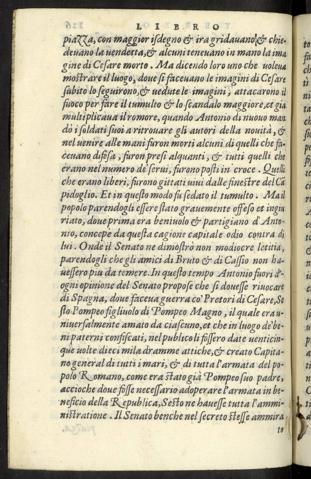 LIBRO
piazza, con maggior isdegno & ira gridauano, & chie-
deuano la uendetta, & alcuni teneuano in mano la ima
gine di Cesare morto. Ma dicendo loro uno che uoleua
mostrare il luogo, doue si faceuano le imagini di Cesare
subito lo seguirono, & uedute le imagini, attaccarono il
fuoco per fare il tumulto & lo scandalo maggiore, et gia
multiplicaua il romore, quando Antonio di nuouo man
dò i soldati suoi a ritrouare gli autori della nouità, &
nel uenire alle mani furon morti alcuni di quelli che fa-
ceuano difesa, furon presi alquanti, & tutti quelli che
erano nel numero de serui, furono posti in croce. Quelli
che erano liberi, furono gittati uiui dalle finestre del Ca
pidoglio. Et in questo modo fu sedato il tumulto. Ma il
popolo parendogli essere stato grauemente offeso et ingiu
riato, doue prima era beniuolo & partigiano d'Anto-
nio, concepè da questa cagione capitale odio contra di
lui. Onde il Senato ne dimostrò non mediocre letitia,
parendogli che gli amici di Bruto & di Cassio non ha-
uessero piu da temere. In questo tempo Antonio fuori d'o-
gni opinione del Senato propose che si douesse riuocare
di Spagna, doue faceua guerra co' Pretori di Cesare, Se
sto Pompeo figliuolo di Pompeo Magno, il quale era u-
niuersalmente amato da ciascuno, et che in luogo de be-
ni paterni confiscati, nel publico li fossero date uenticin-
que uolte dieci mila dramme attiche, & creato Capita-
no general di tutti i mari, & di tutta l'armata del po-
polo Romano, come era stato già Pompeo suo padre,
accioche doue fosse necessario adoperare l'armata in be-
neficio della Republica, Sesto ne hauesse tutta l'ammi-
nistratione. Il Senato benche nel secreto stesse ammira
to